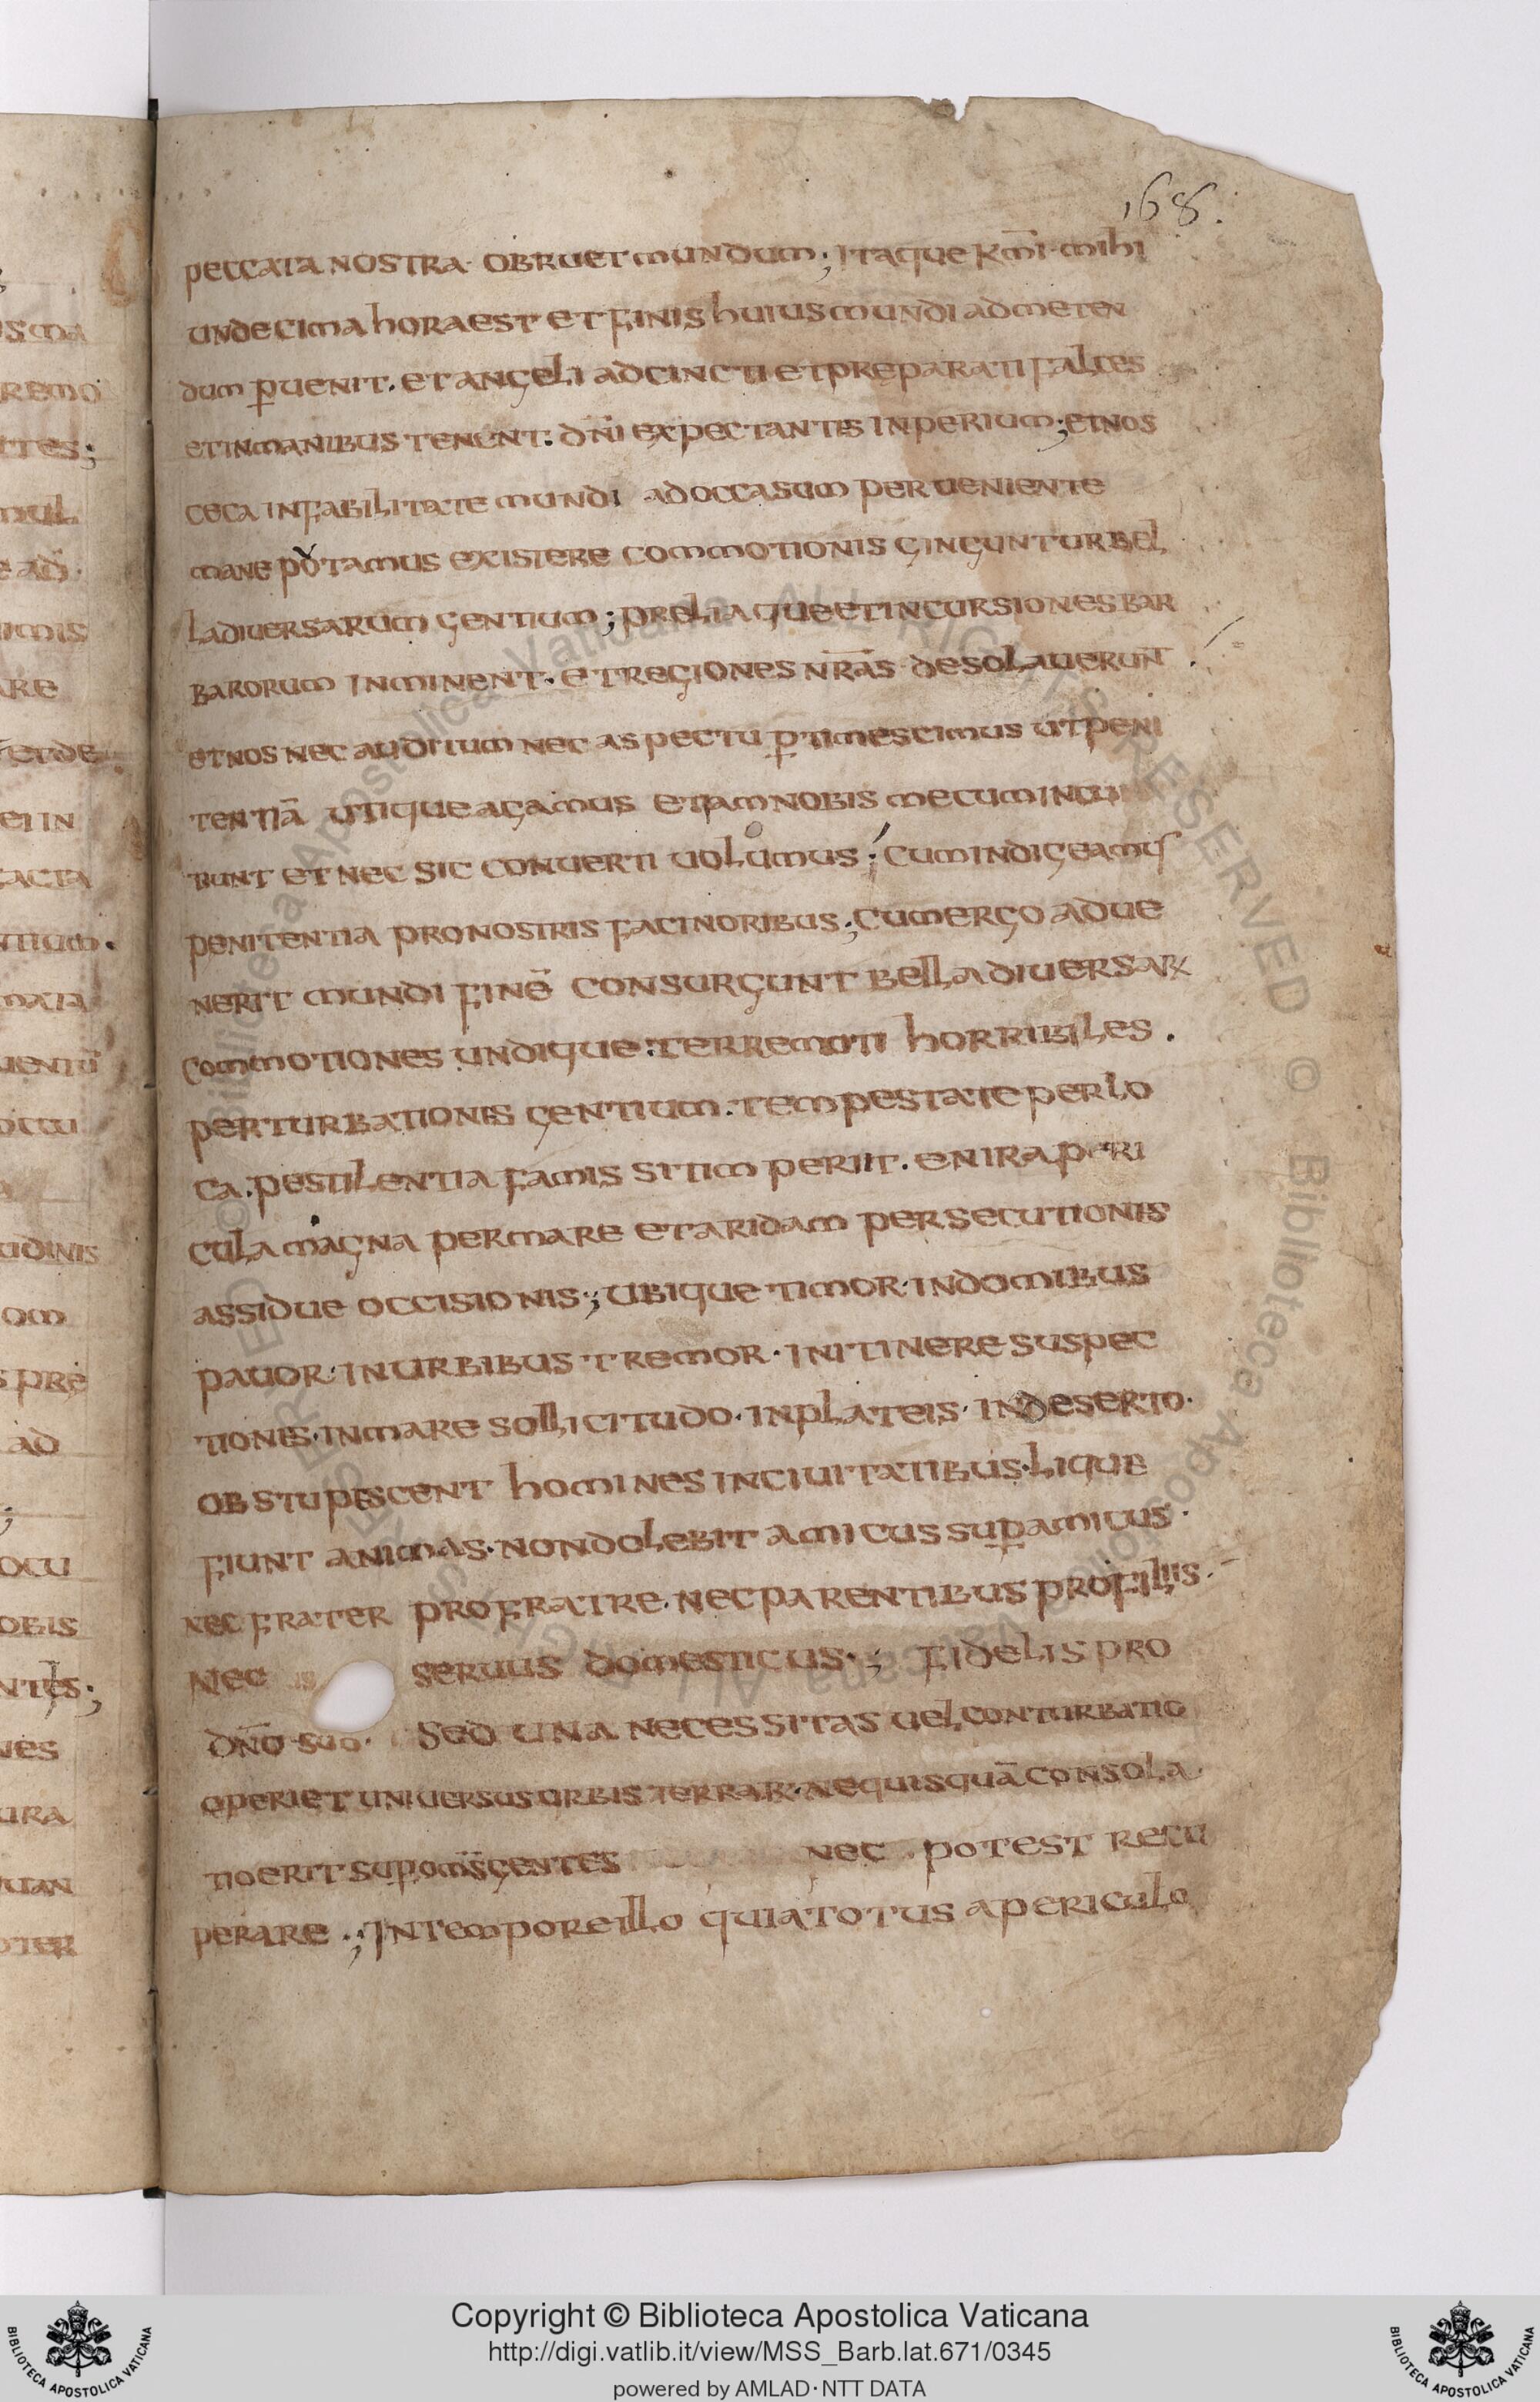 168.
peccata nostra· obruet mundum; itaque km̄i· mihi
undecima hora est et finis huius mundi ad meten
dum p̱uenit. et angeli adcincti et preparati falces
et in manibus tenent. dn̄i expectantis inperium; et nos
ceca infabilitate mundi ad occasum perueniente
mane potamus existere commotionis ginguntur bel
la diuersarum gentium; preliaque et incursiones bar
barorum inminent. et regiones nr̄as· desolauerunt
et nos nec auditum nec aspectu p̱timescimus ut peni
tentiā utique agamus etiam nobis metum incu
tiunt et nec sic conuerti uolumus; cum indigeamus
penitentia pro nostris facinoribus; cum ergo adue
nerit mundi finē consurgunt bella diuersaꝝ
commotiones undique: terremoti horribiles.
perturbationis gentium. tempestate per lo
ca. pestilentia famis sitim periit. enira peri
cula magna per mare et aridam persecutionis
assidue occisionis; ubique timor· in domibus
pauor· in urbibus tremor· in itinere suspec
tionis· in mare sollicitudo· in plateis· in deserto·
obstupescent homines in ciuitatibus· lique
fiunt animas· non dolebit amicus sup̱ amicus·
nec frater pro fratre. nec parentibus pro filiis·
nec seruus domesticus·; fidelis pro
dn̄o suo· sed una necessitas uel conturbatio
operiet uniuersus orbis terraꝝ· ne quisquā consola
tio erit sup̱ om̄s gentes nec potest recu
perare·; in tempore illo quia totus a periculo
Copyright © Biblioteca Apostolica Vaticana
http://digi.vatlib.it/view/MSS_Barb.lat.671/0345
powered by AMLAD·NTT DATA
BIBLIOTECA APOSTOLICA VATICANA
BIBLIOTECA APOSTOLICA VATICANA